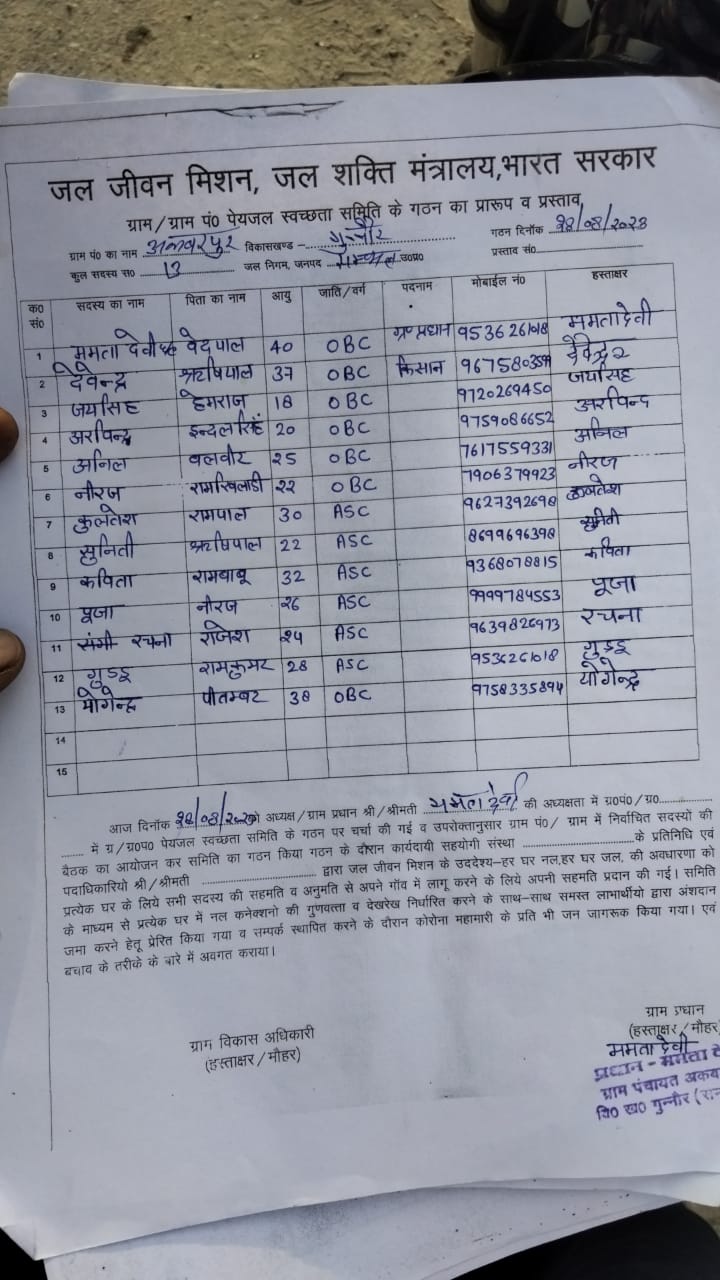 जल जीवन मिशन, जल शक्ति मंत्रालय,भारत सरकार
ग्राम/ग्राम पं० पेयजल स्वच्छता समिति के गठन का प्रारूप व प्रस्ताव
ग्राम पं० का नाम विकासखण्ड - गुन्नौर गठन दिनाँक
कुल सदस्य स० 13 जल निगम, जनपद सम्भल उ०प्र० प्रस्ताव सं०
क० सं० सदस्य का नाम पिता का नाम आयु जाति/वर्ग पदनाम मोबाईल नं० हस्ताक्षर
1 ममता देवी वेदपाल 40 OBC ग्र० प्रधान 9536261018 ममता देवी
2 देवेन्द्र ऋषिपाल 37 OBC किसान देवेन्द्र
3 जयसिंह हेमराज 18 OBC 9720269450 जयसिंह
4 अरविन्द्र इन्दल सिंह 20 OBC 9759086652 अरविन्द
5 अनिल बलवीर 25 OBC 7617559331 अनिल
6 नीरज रामखिलाडी 22 OBC 7906379923 नीरज
7 कुलतेश रामपाल 30 ASC 9627392698 कुलतेश
8 सुनिती ऋषिपाल 22 ASC 8699696398 सुनिती
9 कविता रामबाबू 32 ASC 9368078815 कविता
10 पूजा नीरज 26 ASC 9999784553 पूजा
11 रचना राजेश 24 ASC 9639826973 रचना
12 गुड्डू रामकुमार 28 ASC 9536261018 गुड्डू
13 योगेन्द्र पीतम्बर 38 OBC 9758335894 योगेन्द्र
14
15
आज दिनाँक को अध्यक्ष/ग्राम प्रधान श्री/श्रीमती ममता देवी की अध्यक्षता में ग्र०पं०/ग्र०
में ग्र/ग्र०प० पेयजल स्वच्छता समिति के गठन पर चर्चा की गई व उपरोक्तानुसार ग्राम पं०/ ग्राम में निर्वाचित सदस्यों की
बैठक का आयोजन कर समिति का गठन किया गया गठन के दौरान कार्यदायी सहयोगी संस्था के प्रतिनिधि एवं
पदाधिकारियो श्री/श्रीमती द्वारा जल जीवन मिशन के उददेश्य-हर घर नल,हर घर जल, की अवधारणा को
प्रत्येक घर के लिये सभी सदस्य की सहमति व अनुमति से अपने गाँव में लागू करने के लिये अपनी सहमति प्रदान की गई। समिति
के माध्यम से प्रत्येक घर में नल कनेक्शनो की गुणवत्ता व देखरेख निर्धारित करने के साथ-साथ समस्त लाभार्थीयो द्वारा अंशदान
जमा करने हेतू प्रेरित किया गया व सम्पर्क स्थापित करने के दौरान कोरोना महामारी के प्रति भी जन जागरूक किया गया। एवं
बचाव के तरीके के बारे में अवगत कराया।
ग्राम विकास अधिकारी
(हस्ताक्षर/मौहर)
ग्राम प्रधान
(हस्ताक्षर/मौहर)
ममता देवी
प्रधान - ममता
ग्राम पंचायत
वि० ख० गुन्नौर